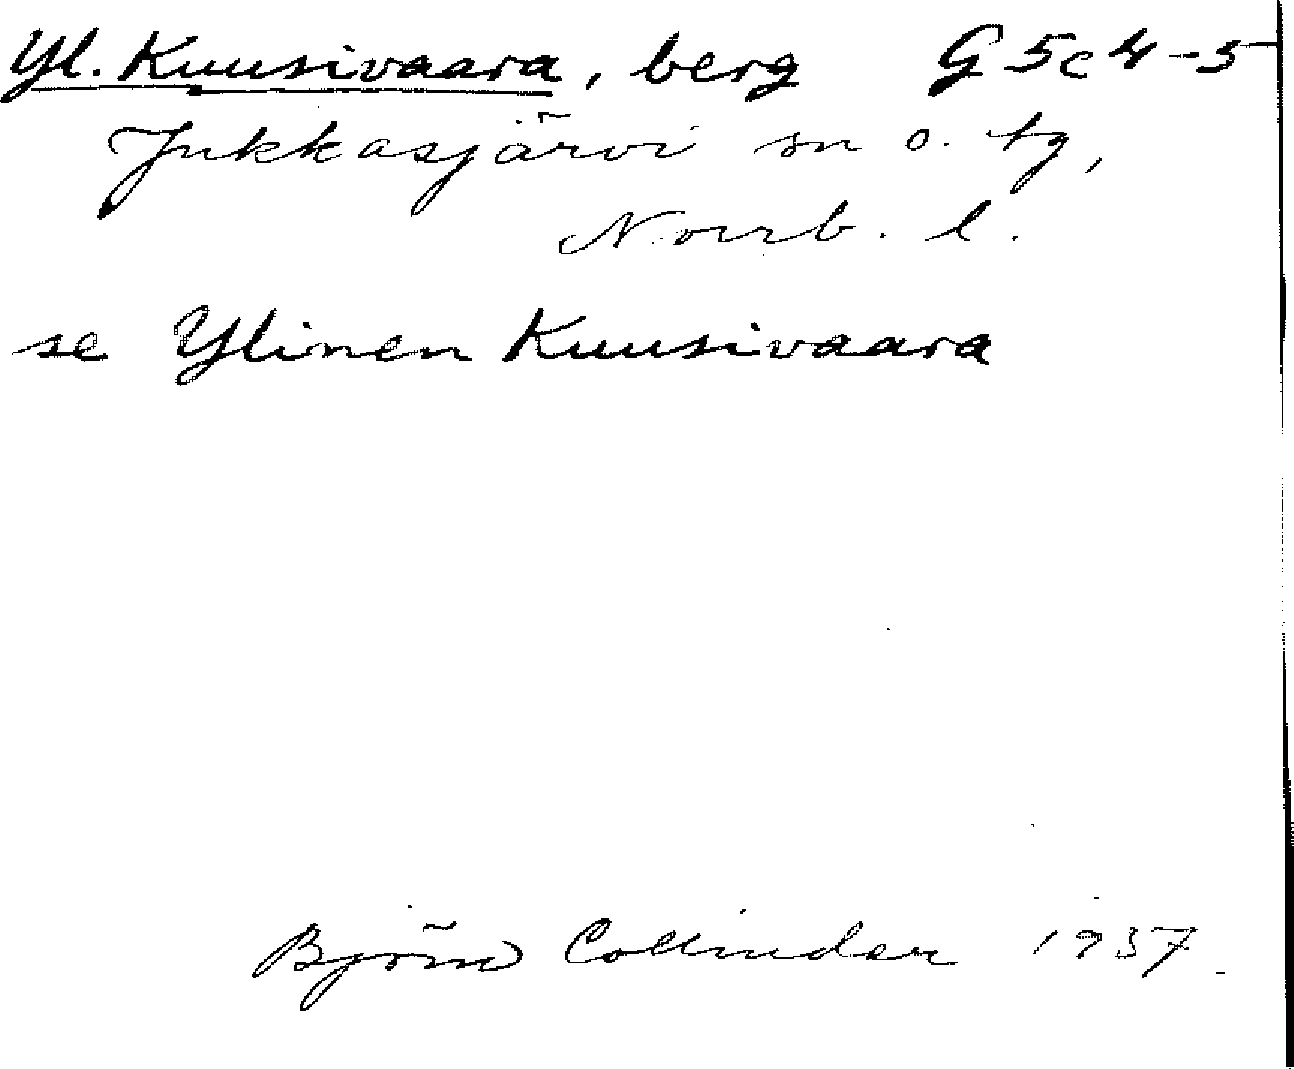 Yl. Kuusivaara, berg G 5c 4-5
Jukkasjärvi sn o. tg,
Norrb. l.
se Ylinen Kuusivaara
Björn Collinder 1957.